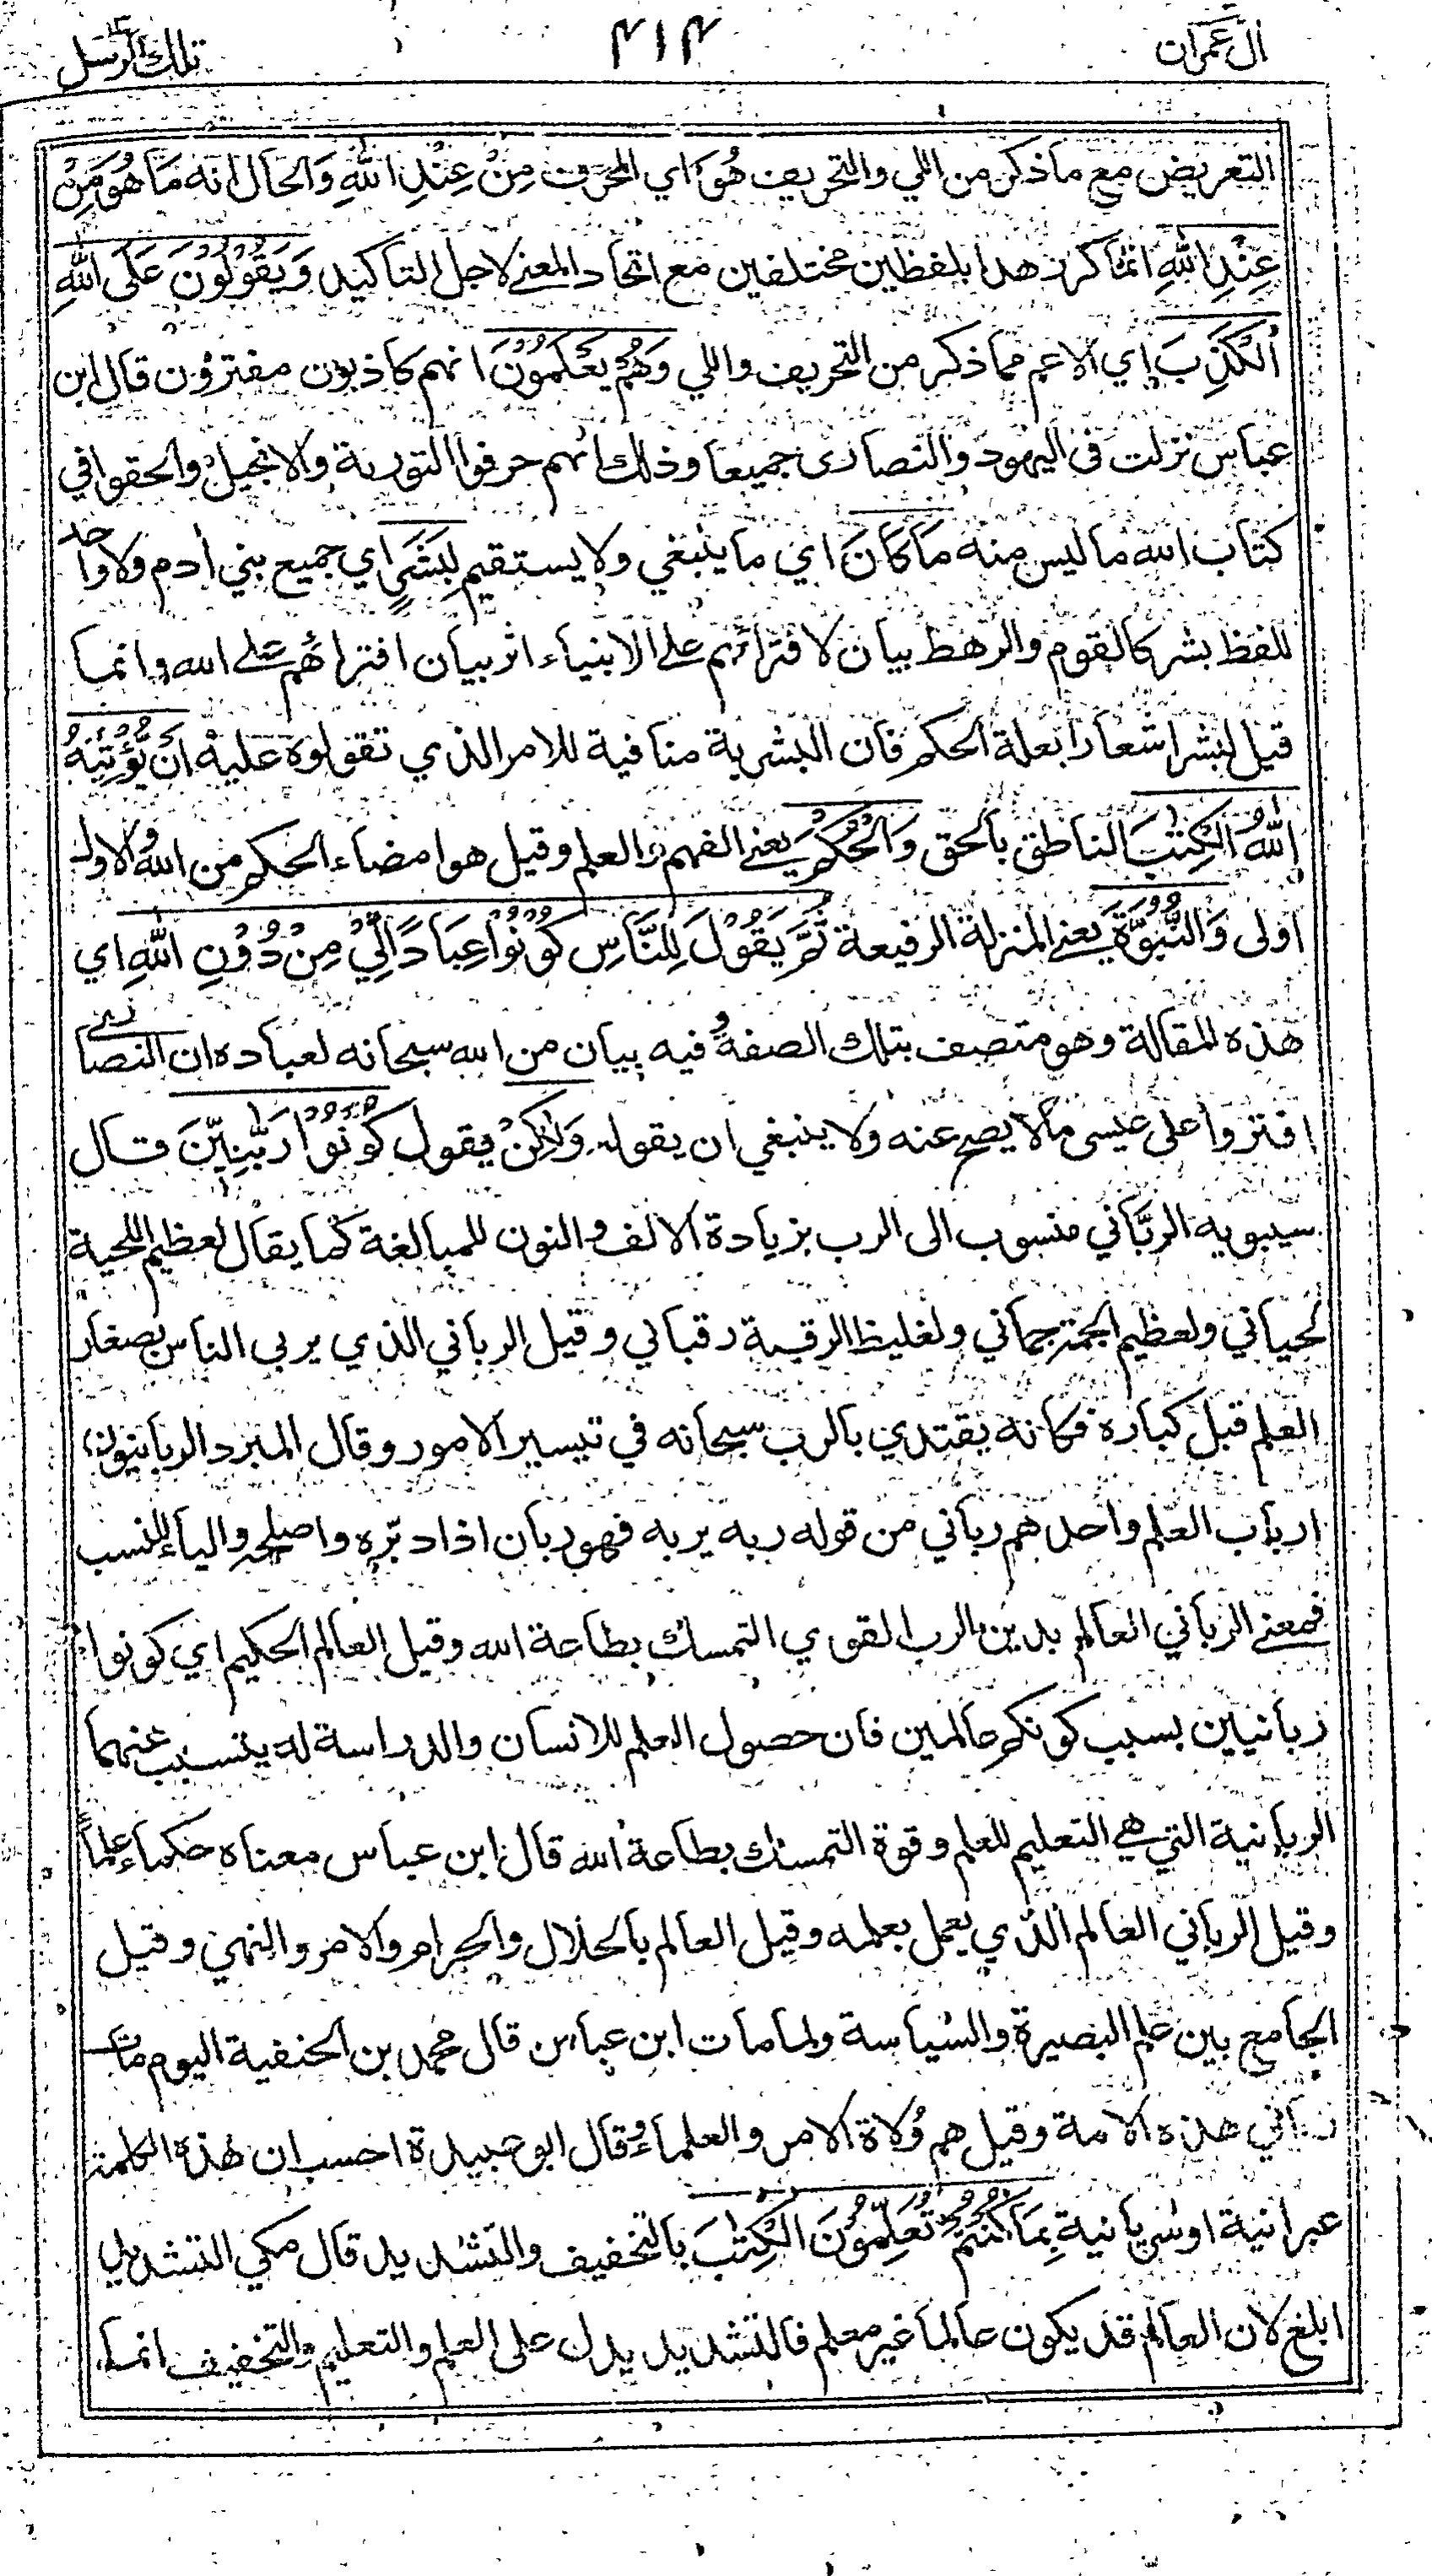 ال عمران
٤١٤
تلك الرسل
التعريض مع ما ذكر من اللي والتحريف هُوَ اي المحرف مِنْ عِنْدِ اللهِ وَالحال انه مَا هُوَ مِنْ
عِنْدِ اللهِ انما كرر هذا بلفظين مختلفين مع اتحاد المعنے لاجل التاكيد وَيَقُوْلُوْنَ عَلَى اللهِ
الْكَذِبَ اي الاعم مما ذكر من التحريف واللي وَهُمْ يَعْلَمُوْنَ انهم كاذبون مفترون قال ابن
عباس نزلت فى اليهود والنصارى جميعا وذلك انهم حرفوا التورىة والانجيل والحقوا في
كتاب الله ما ليس منه مَا كَانَ اي ما ينبغي ولا يستقيم لِبَشَرٍ اي جميع بني ادم ولا واحد
للفظ بشر كالقوم والرهط بيان لافترائهم على الانبياء اثر بيان افترائهم على الله وانما
قيل لبشر اشعارا بعلة الحكم فان البشرية منافية للامر الذي تقولوه عليه اَنْ يُّؤْتِيَهُ
اللهُ الْكِتٰبَ الناطق بالحق وَالْحُكْمَ يعنے الفهم والعلم وقيل هو امضاء الحكم من الله والاول
اولى وَالنُّبُوَّةَ يعنے المنزلة الرفيعة ثُمَّ يَقُوْلَ لِلنَّاسِ كُوْنُوْا عِبَادًا لِّيْ مِنْ دُوْنِ اللهِ اي
هذه المقالة وهو متصف بتلك الصفة وفيه بيان من الله سبحانه لعباده ان النصارى
افتروا على عيسى ما لا يصح عنه ولا ينبغي ان يقوله وَلٰكِنْ يقول كُوْنُوْا رَبّٰنِيّٖنَ قال
سيبويه الربّاني منسوب الى الرب بزيادة الالف والنون للمبالغة كما يقال لعظيم اللحية
لحياني ولعظيم الجمة جماني ولغليظ الرقبة رقباني وقيل الرباني الذي يربى الناس بصغار
العلم قبل كباره فكانه يقتدي بالرب سبحانه في تيسير الامور وقال المبرد الربانيون
ارباب العلم واحدهم رباني من قوله ربه يربه فهو ربان اذا دبّره واصلحه والياء للنسب
فمعنے الرباني العالم بدين الرب القوي التمسك بطاعة الله وقيل العالم الحكيم اي كونوا
ربانيين بسبب كونكم عالمين فان حصول العلم للانسان والدراسة له يتسبب عنهما
الربانية التي هي التعليم للعلم وقوة التمسك بطاعة الله قال ابن عباس معناه حكماء علماء
وقيل الرباني العالم الذي يعمل بعلمه وقيل العالم بالحلال والحرام والامر والنهي وقيل
الجامع بين علم البصيرة والسياسة ولما مات ابن عباس قال محمد بن الحنفية اليوم مات
رباني هذه الامة وقيل هم وُلاة الامر والعلماء وقال ابو عبيدة احسب ان هذه الكلمة
عبرانية او سريانية بِمَا كُنْتُمْ تُعَلِّمُوْنَ الْكِتٰبَ بالتخفيف والتشديد قال مكي التشديد
ابلغ لان العالم قد يكون عالما غير معلم فالتشديد يدل على العلم والتعليم والتخفيف انما